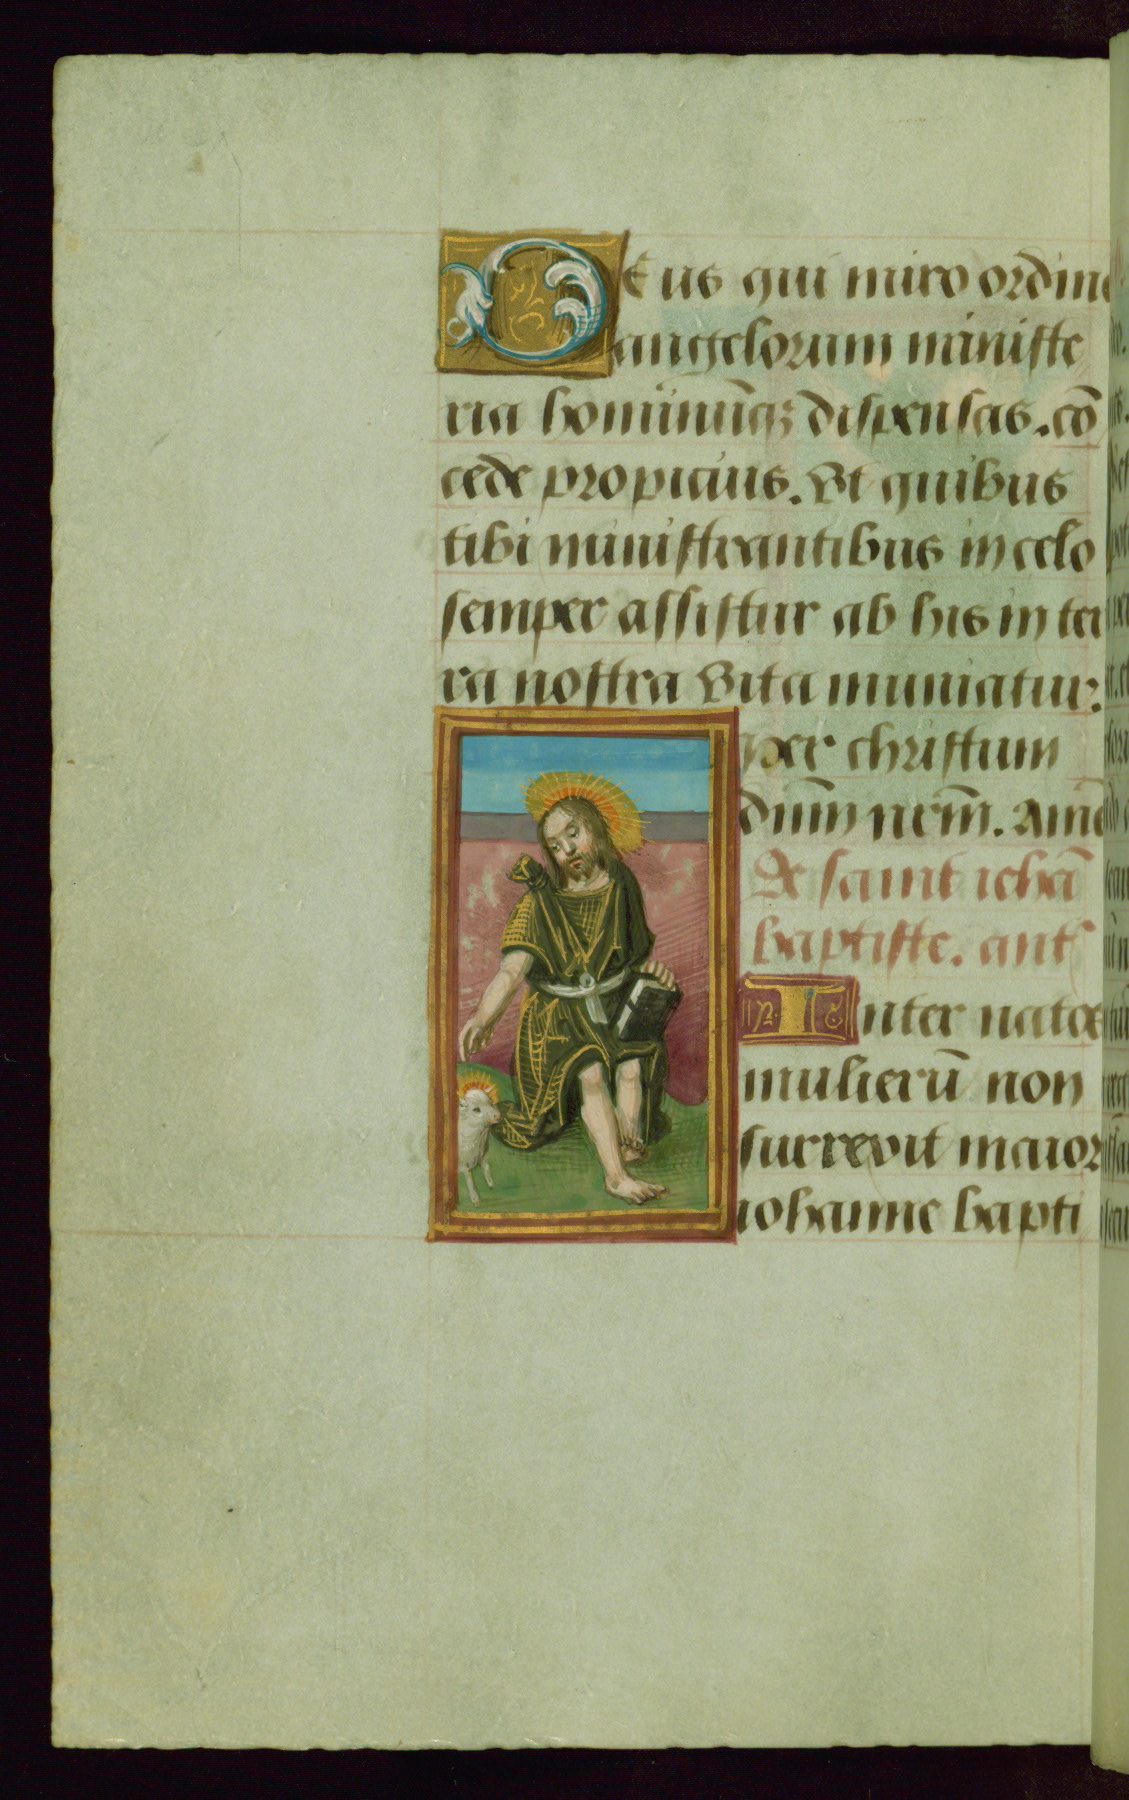 Deus qui miro ordine
angelorum ministe
ria hominūqꝫ dispensas. cō
cede propicius. Vt quibus
tibi ministrantibus in celo
semper assistur ab his in ter
ra nostra vita muniatur.
per christum
dūm nrm̄. Amē
De saint iehā
baptiste. ant
Inter natos
mulierū non
surrexit maior
iohanne bapti